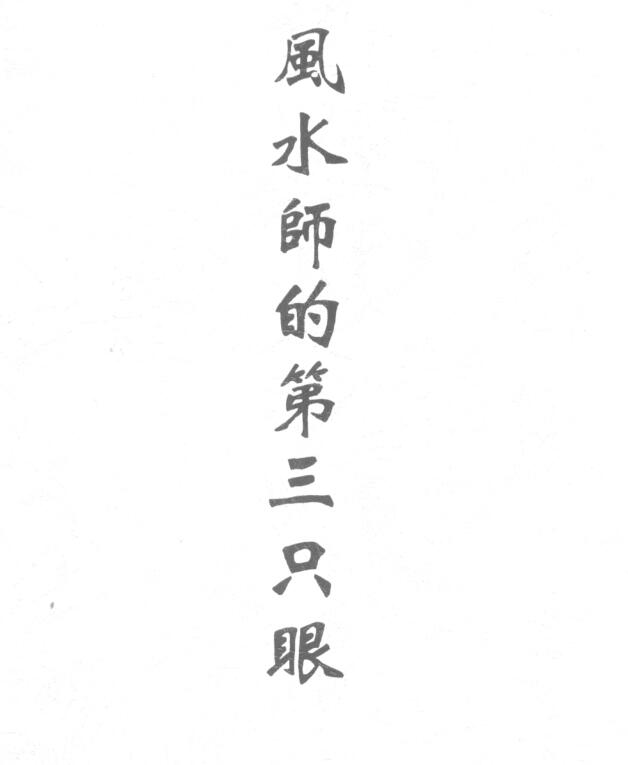 風水師的第三只眼